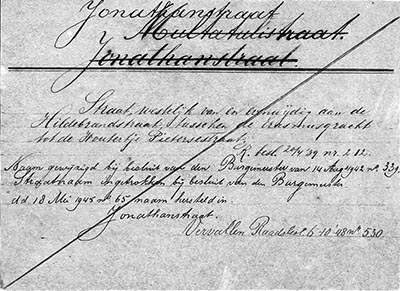 Jonathanstraat
Multatulistraat.
Jonathanstraat.
Straat, westelijk van en evenwijdig aan de
Hildebrandstraat, tusschen de Erasmusgracht
tot de Wouterlje Pietersestraat.
R. besl. 20/4 '39 nr. 212.
Naam gewijzigd bij besluit van den Burgemeester van 14 Aug 1942 no. 339.
Straatnaam ingetrokken bij besluit van den Burgemeester
d.d. 18 Mei 1945 no 65, naam hersteld in
Jonathanstraat.
Vervallen Raadsbesl. 6-10-'48 no 530.